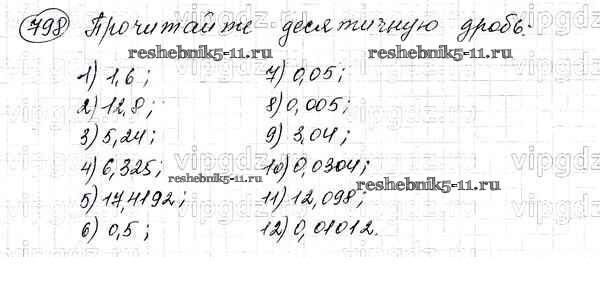 798 Прочитайте десятичную дробь:
reshebnik5-11.ru reshebnik5-11.ru
1) 1,6; 7) 0,05;
2) 12,8; 8) 0,005;
3) 5,24; 9) 3,04;
4) 6,325; 10) 0,0304;
reshebnik5-11.ru reshebnik5-11.ru
5) 17,4192; 11) 12,098;
6) 0,5; 12) 0,01012.